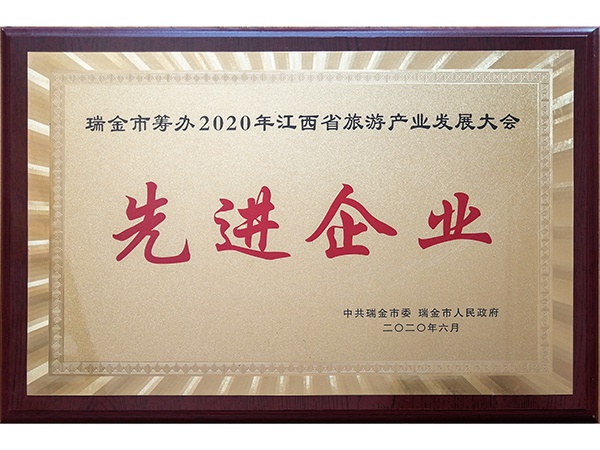 瑞金市筹办2020年江西省旅游产业发展大会
先进企业
中共瑞金市委 瑞金市人民政府
二〇二〇年六月